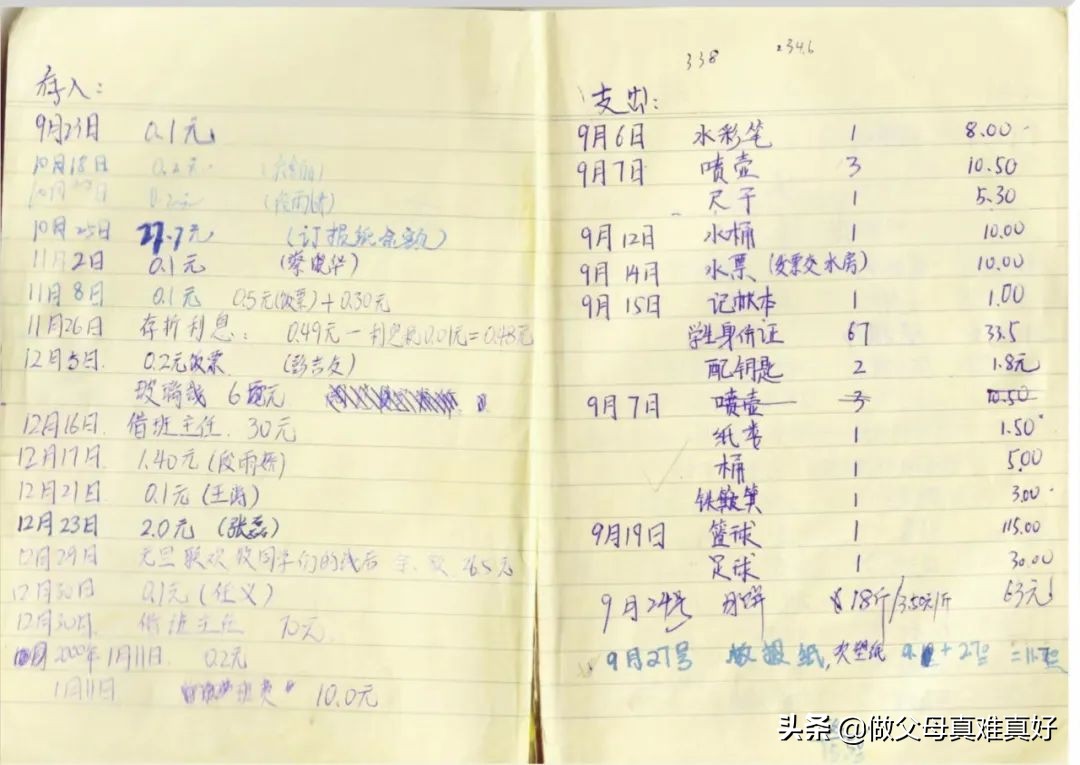 存入：
9月23日 0.1元
10月18日 0.2元
0.2元
10月25日 27.7元 (订报纸余额)
11月2日 0.1元 (蔡俊华)
11月8日 0.1元 0.5元(饭票)+0.30元
11月26日 存折利息： 0.49元－利息税0.01元=0.48元
12月5日 0.2元饭票 (彭吉友)
玻璃钱 6元
12月16日 借班主任 30元
12月17日 1.40元(段雨妍)
12月21日 0.1元(王涛)
12月23日 2.0元 (张磊)
12月29日 元旦联欢 同学们的钱后 余 26.5元
12月30日 0.1元(任义)
12月30日 借班主任 70元
2000年1月11日 0.2元
1月11日 班费 10.0元
338 234.6
支出：
9月6日 水彩笔 1 8.00
9月7日 喷壶 3 10.50
尺子 1 5.30
9月12日 水桶 1 10.00
9月14日 水票 (发票交水房) 10.00
9月15日 记账本 1 1.00
学生身份证 67 33.5
配钥匙 2 1.8元
9月7日 喷壶 3 10.50
纸类 1 1.50
桶 1 5.00
铁 1 3.00
9月19日 篮球 1 115.00
足球 1 30.00
9月24号 月饼 18斤/3.50元/斤 63元
9月27号 报纸 =11.7元
头条 @做父母真难真好